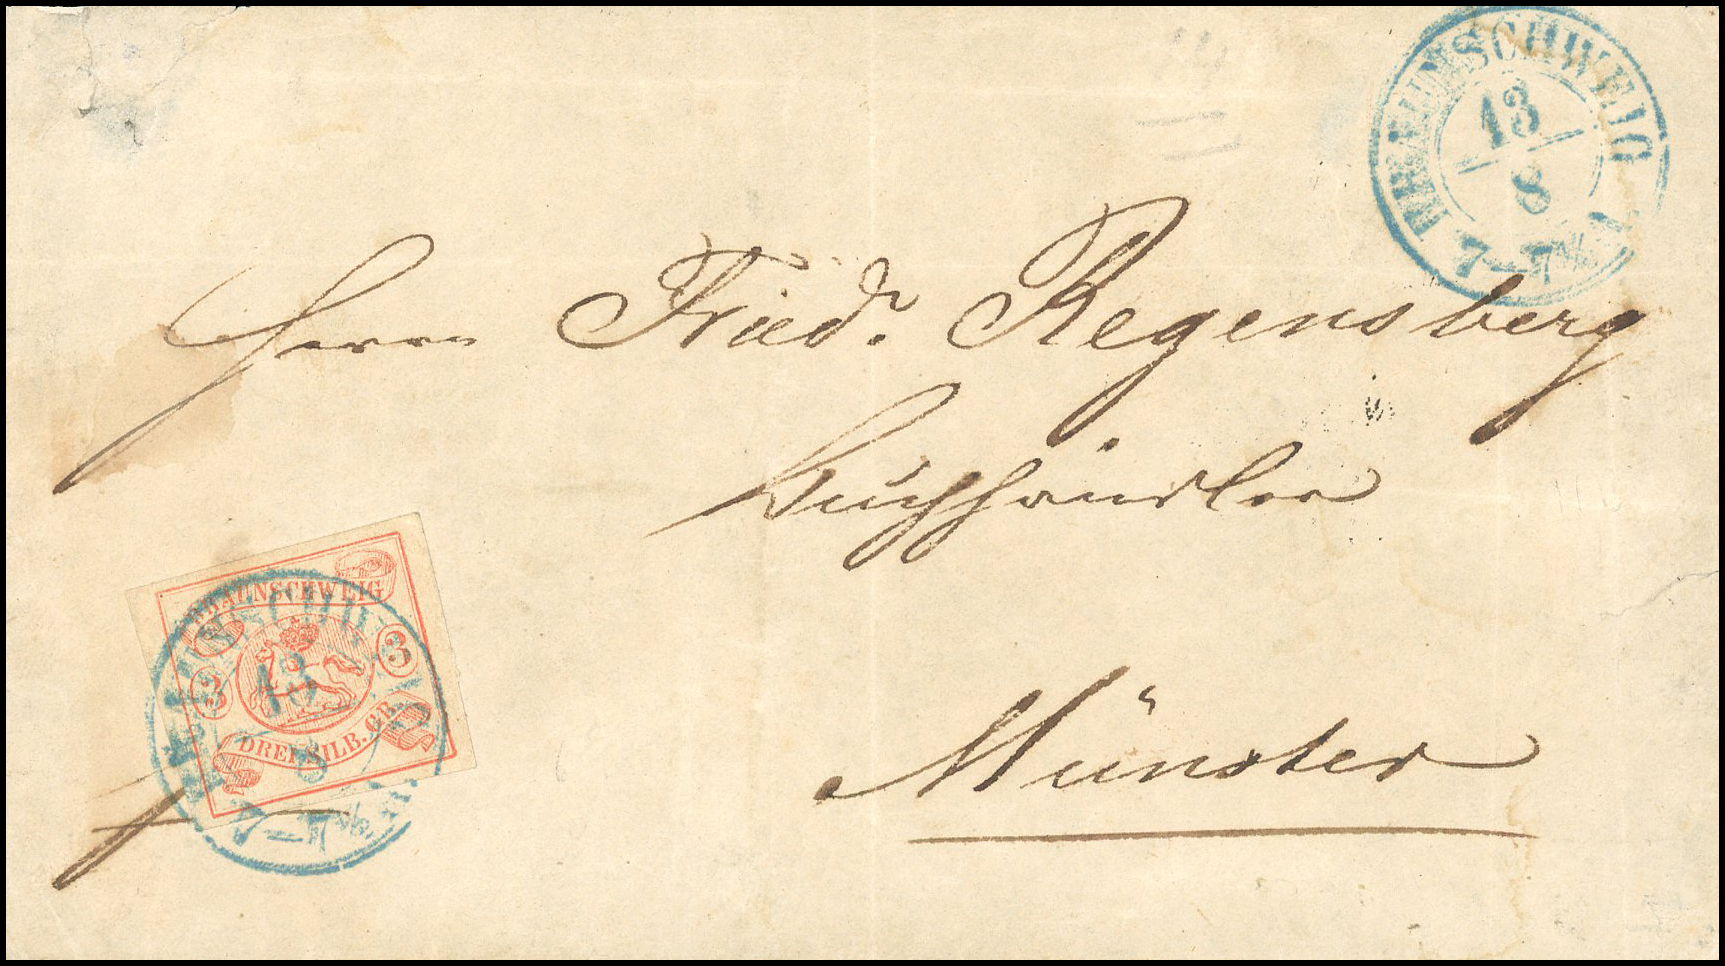 BRAUNSCHWEIG
13
8
7—7½
Herrn Friedr. Regensberg
Buchhändler
Münster
BRAUNSCHWEIG
3 3
DREI SILB. GR.
BRAUNSCHWEIG
13
8
7—7½